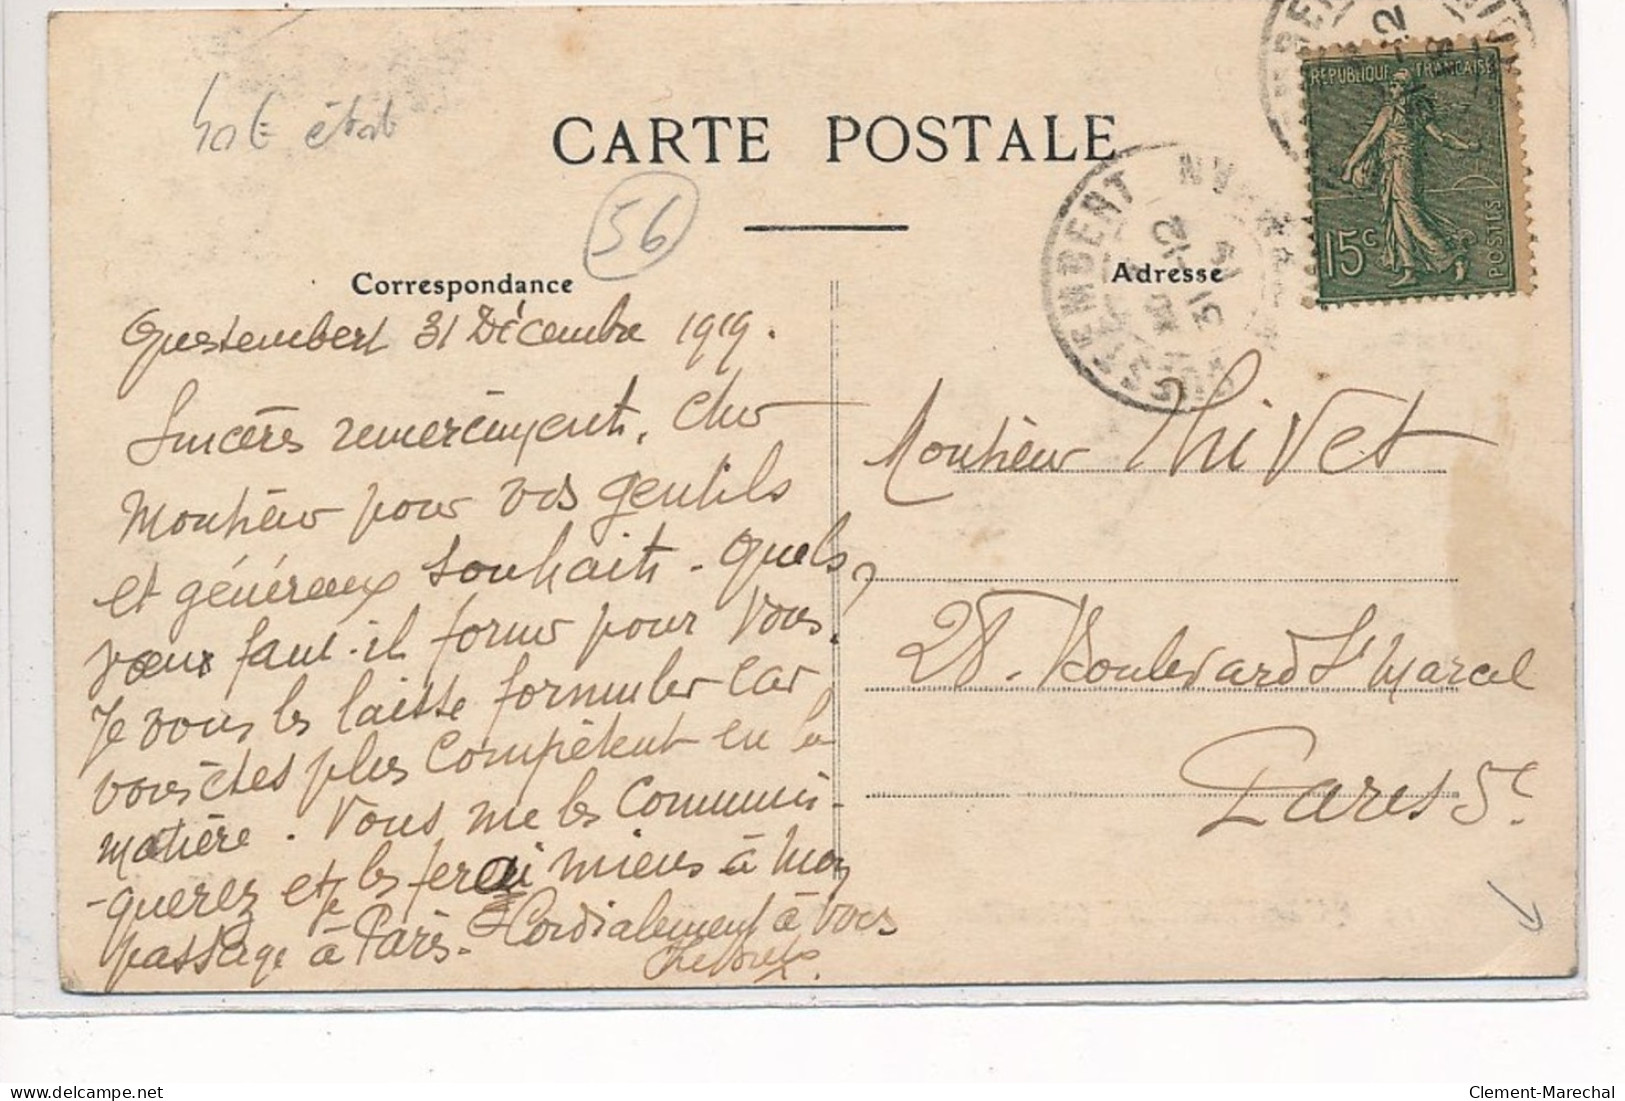 40€ état
CARTE POSTALE
56
Correspondance
Adresse
REPUBLIQUE FRANÇAISE
15c
POSTES
QUESTEMBERT
MORBIHAN
31 -12
Questembert 31 Décembre 1919.
Sincères remerciments, cher
Monsieur pour vos gentils
et généreux souhaits - Quels
vœux faut-il former pour vous,
Je vous les laisse formuler car
vous êtes plus compétent en la
matière. Vous me les communi-
-querez et je les ferai miens à mon
passage à Paris. Cordialement à vous
Monsieur Thivet
28. Boulevard St Marcel
Paris 5e
Clement-Marechal